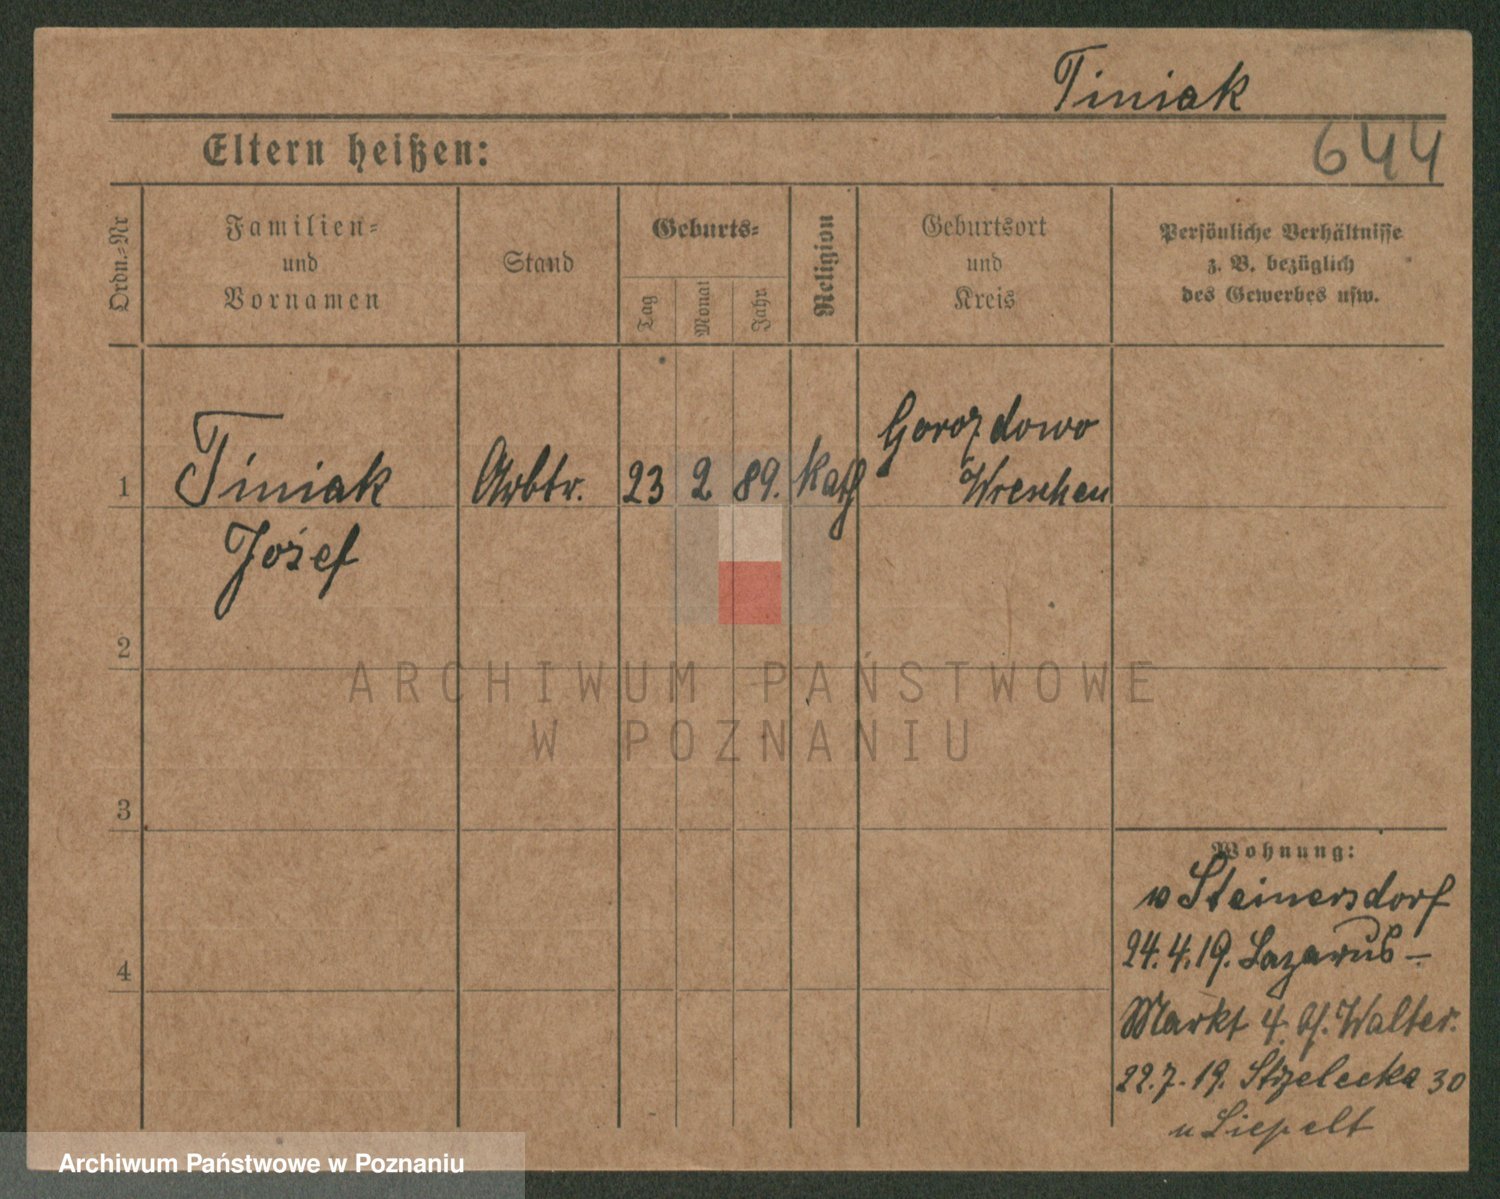 Tiniak
644
Eltern heißen:
Ordn.-Nr
Familien-
und
Vornamen
Stand
Geburts-
Tag
Monat
Jahr
Religion
Geburtsort
und
Kreis
Persönliche Verhältnisse
z. B. bezüglich
des Gewerbes usw.
1
Tiniak
Józef
Arbtr.
23
2
89.
Kath
Gorazdowo
Wreschen
2
3
4
Wohnung:
Steinersdorf
24.4.19. Lazarus-
Markt 4. Walter.
22.7.19. Strzelecka 30
Liepelt
ARCHIWUM PAŃSTWOWE
W POZNANIU
Archiwum Państwowe w Poznaniu